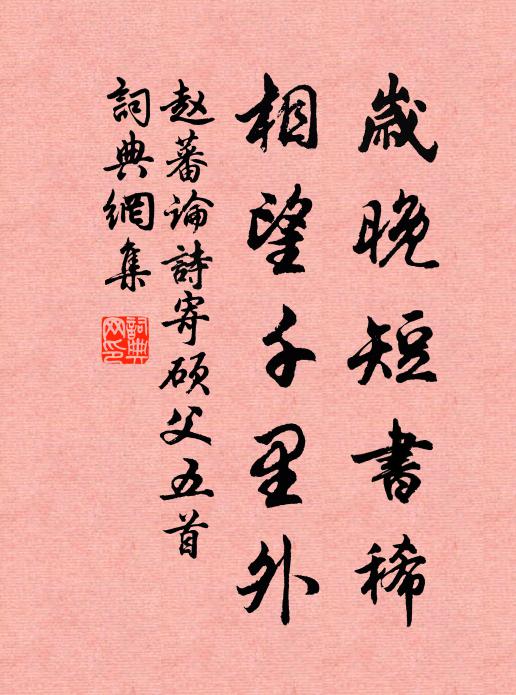 歲晚短書稀
相望千里外
赵蕃論詩寄硕父五首
詞典網集
詞典网印